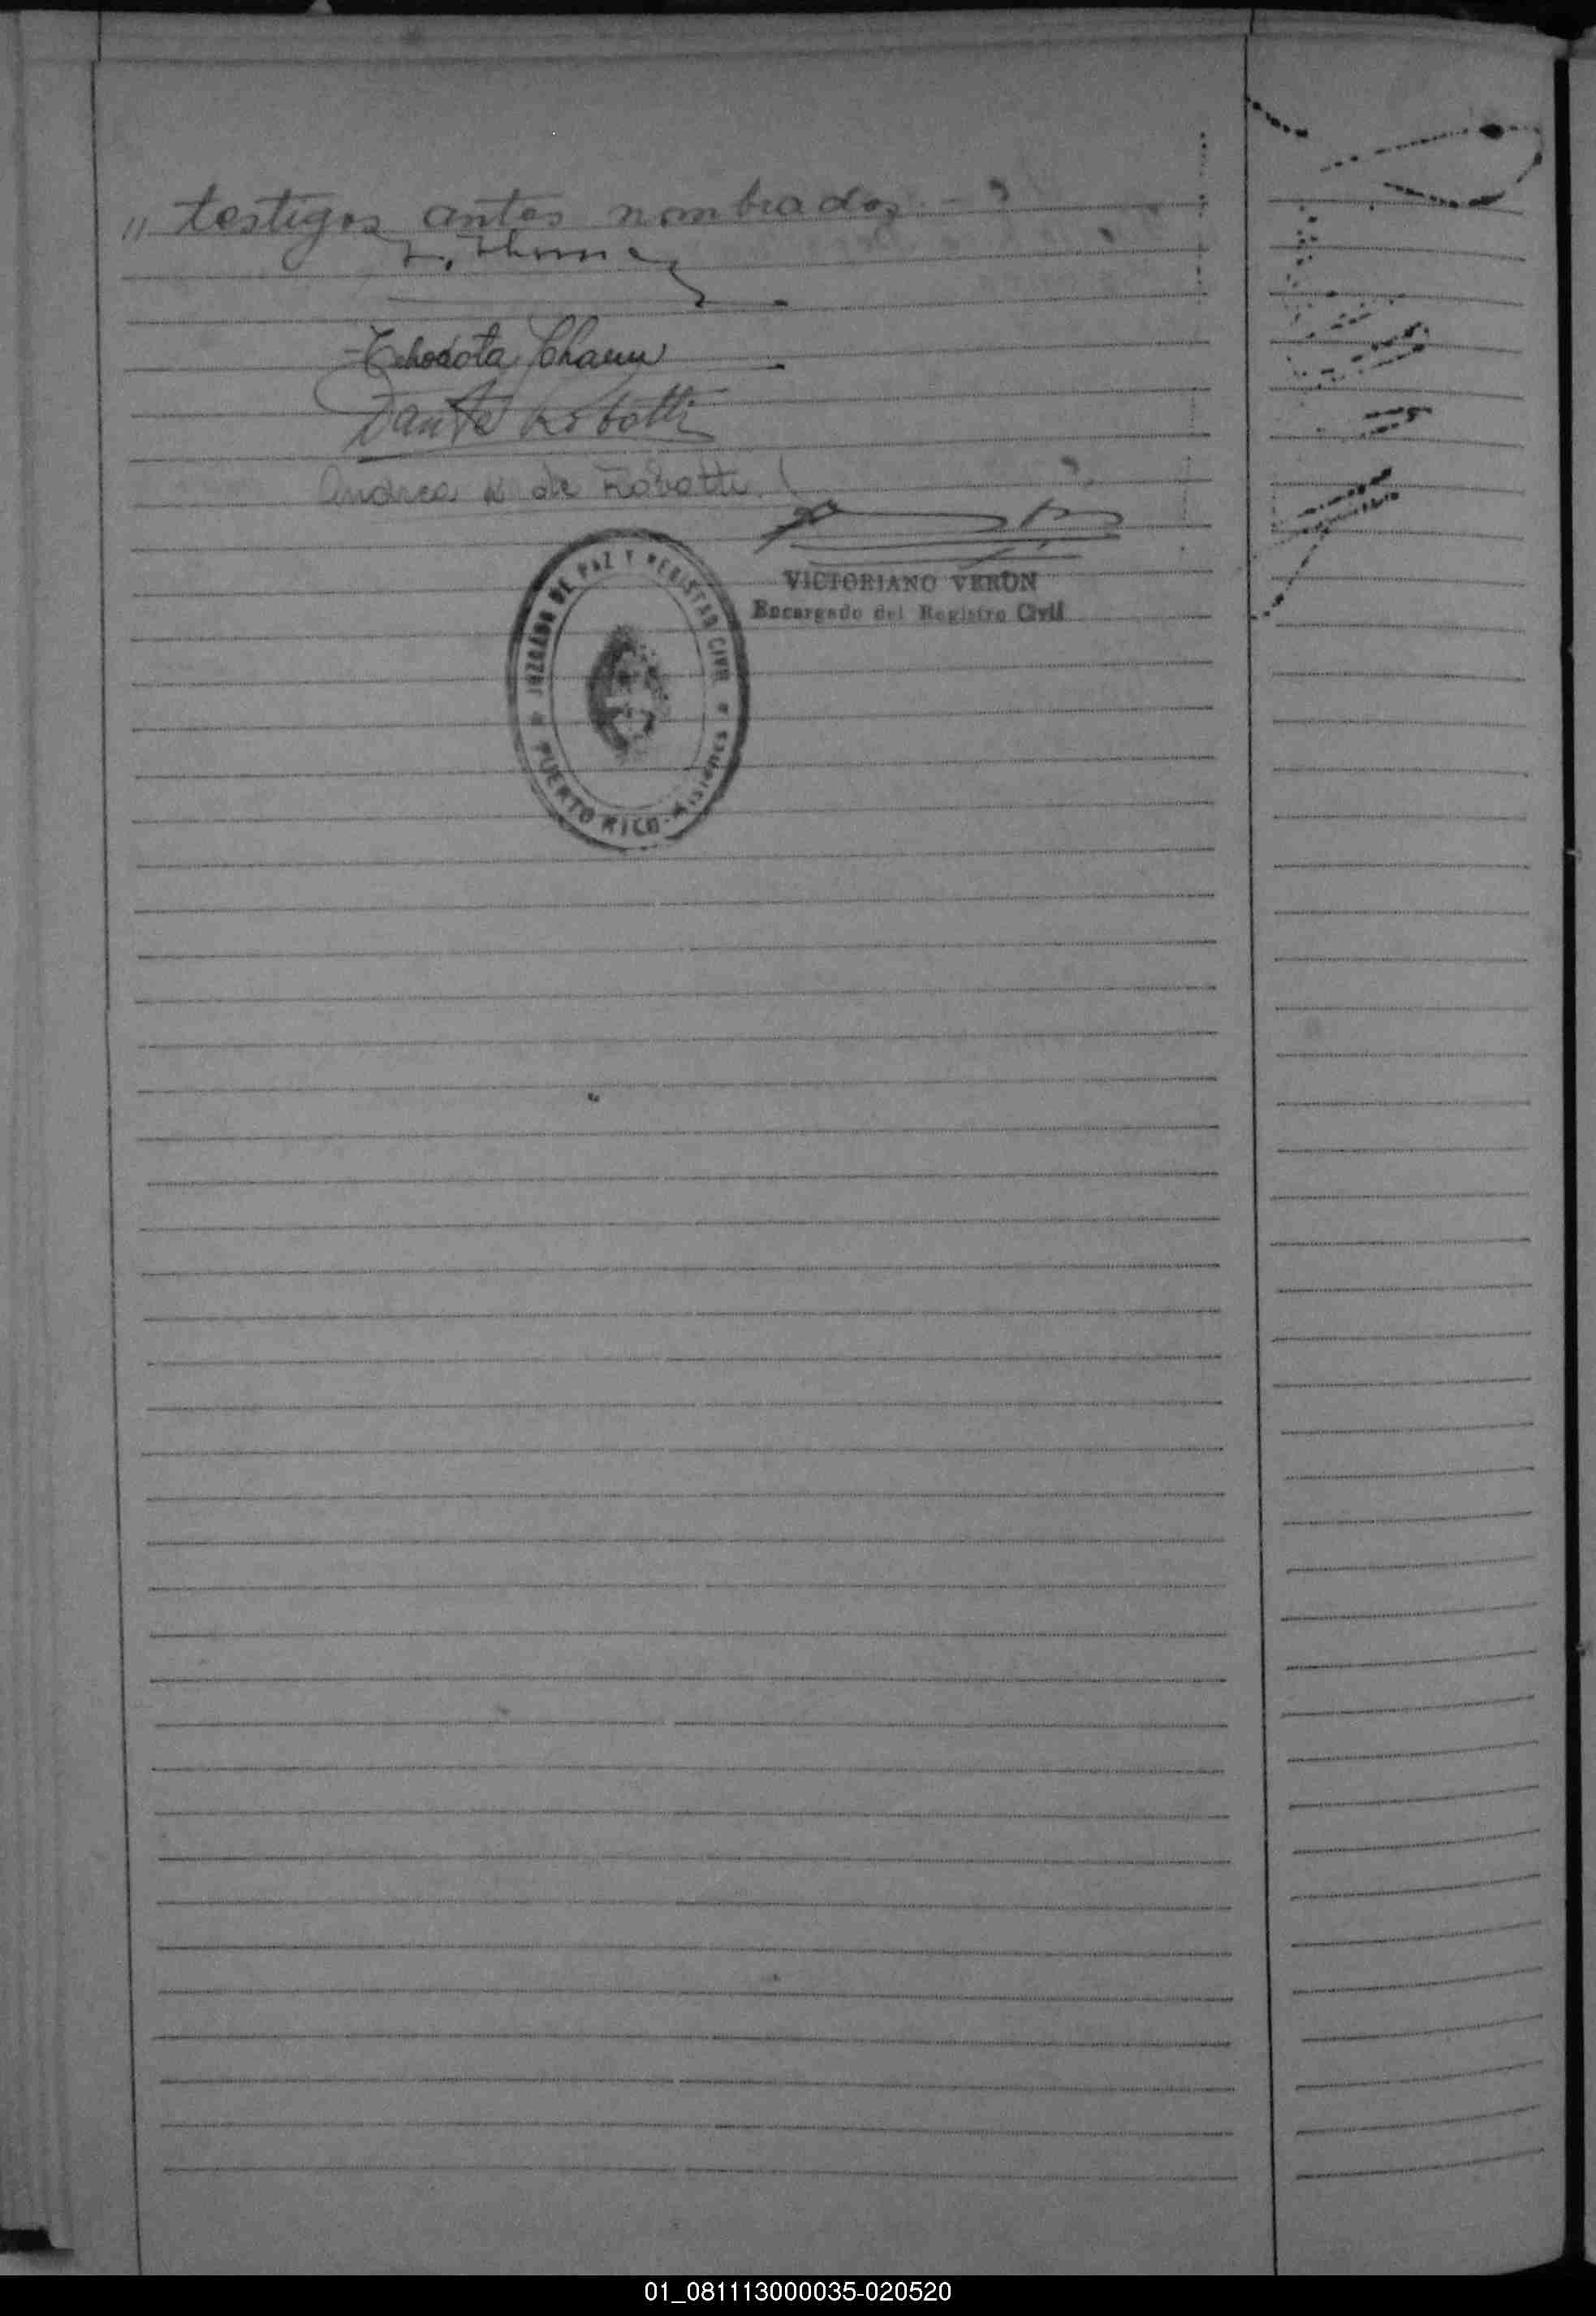 " testigos antes nombrados.-
Dante Robotti
Andrea K de Robotti
VICTORIANO VERON
Encargado del Registro Civil
JUZGADO DE PAZ Y REGISTRO CIVIL
PUERTO RICO - Misiones
01_081113000035-020520